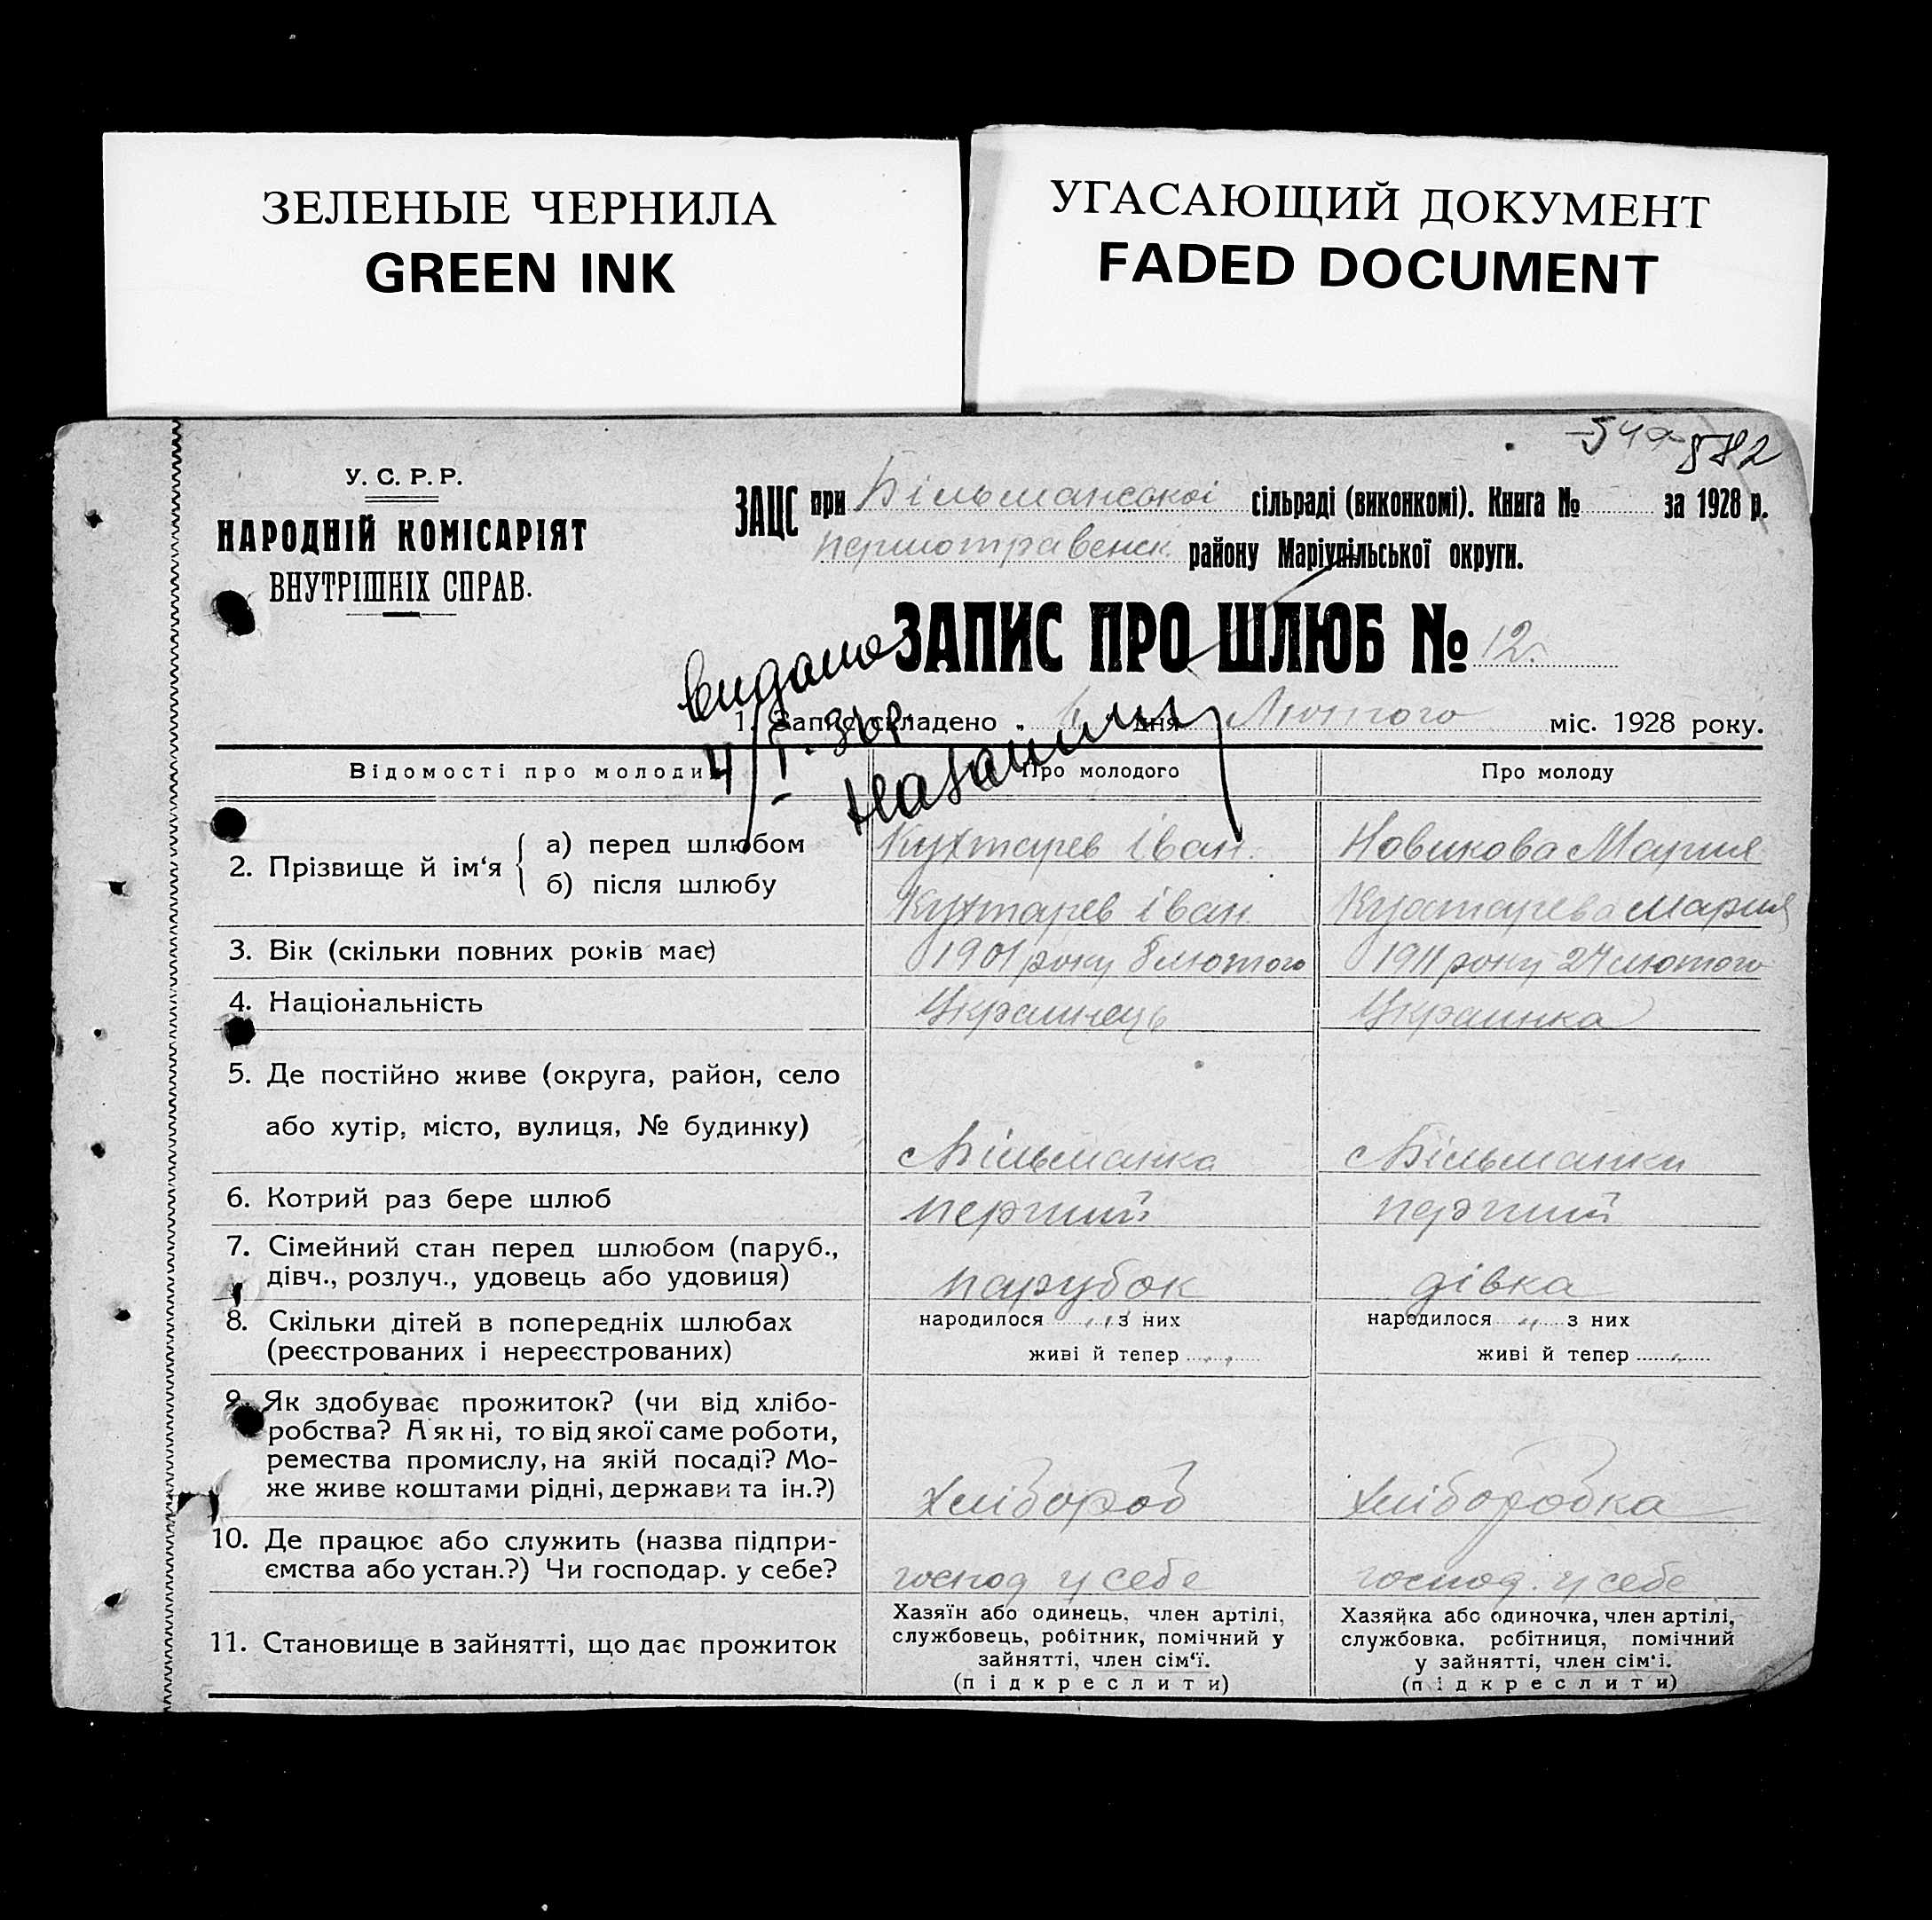 ЗЕЛЕНЫЕ ЧЕРНИЛА
GREEN INK
УГАСАЮЩИЙ ДОКУМЕНТ
FADED DOCUMENT
582
У. С. Р. Р.
НАРОДНІЙ КОМІСАРІЯТ
ВНУТРІШНІХ СПРАВ.
ЗАЦС при Більманської сільраді (виконкомі). Книга № за 1928 р.
першотравенськ району Маріупільської округи.
ЗАПИС ПРО ШЛЮБ № 12
видано
1. Запис складено " " дня Лютого міс. 1928 року.
Відомості про молодих
Про молодого
Про молоду
2. Прізвище й ім‘я
а) перед шлюбом Кухтарев Іван. Новикова Мария
б) після шлюбу Кухтарев Іван Кухтарева Мария
3. Вік (скільки повних років має) 1901 року 8 лютого 1911 року 24 лютого
4. Національність Украинець Украинка
5. Де постійно живе (округа, район, село
або хутір, місто, вулиця, № будинку) с Більманка с Більманки
6. Котрий раз бере шлюб перший перший
7. Сімейний стан перед шлюбом (паруб.,
дівч., розлуч., удовець або удовиця) парубок дівка
8. Скільки дітей в попередніх шлюбах народилося " з них народилося " з них
(реєстрованих і нереєстрованих) живі й тепер " живі й тепер "
9. Як здобуває прожиток? (чи від хлібо-
робства? А як ні, то від якої саме роботи,
ремества промислу, на якій посаді? Мо-
же живе коштами рідні, держави та ін.?) Хлібороб Хліборобка
10. Де працює або служить (назва підпри-
ємства або устан.?) Чи господар. у себе? господ у себе господ. у себе
11. Становище в зайнятті, що дає прожиток
Хазяїн або одинець, член артілі,
службовець, робітник, помічний у
зайнятті, член сім‘ї.
(підкреслити)
Хазяйка або одиночка, член артілі,
службовка, робітниця, помічний
у зайнятті, член сім‘ї.
(підкреслити)